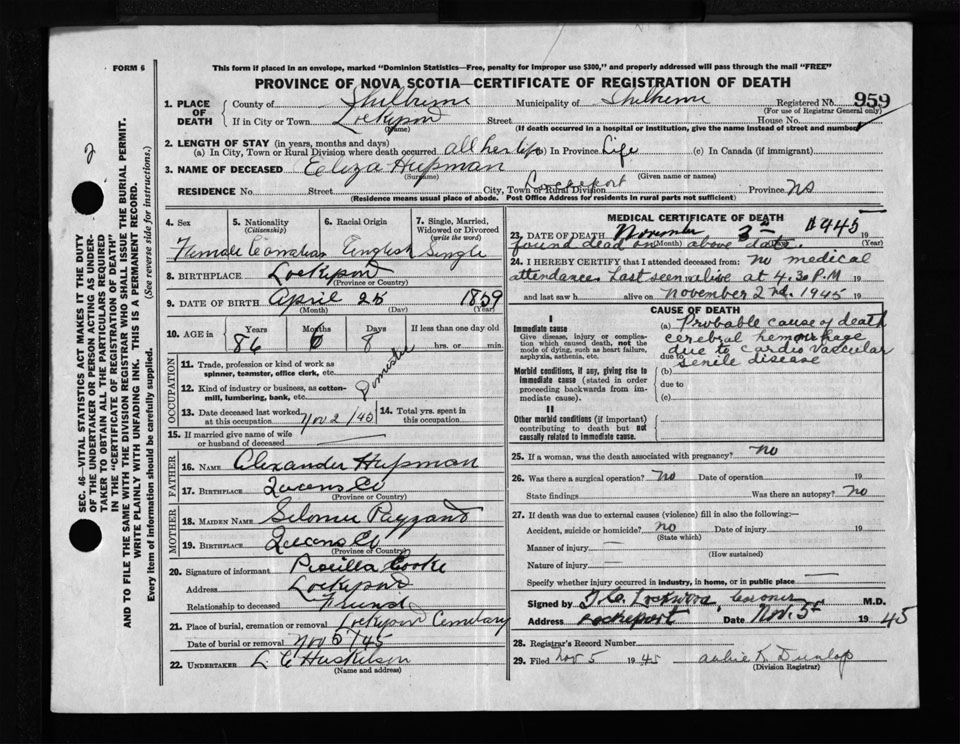 FORM 6
This form if placed in an envelope, marked "Dominion Statistics—Free, penalty for improper use $300," and properly addressed will pass through the mail "FREE"
PROVINCE OF NOVA SCOTIA—CERTIFICATE OF REGISTRATION OF DEATH
1. PLACE OF DEATH { County of Shelburne Municipality of Shelburne Registered No. 959
(For use of Registrar General only)
If in City or Town Lockeport Street House No.
(Name) (If death occurred in a hospital or institution, give the name instead of street and number)
2. LENGTH OF STAY (in years, months and days)
(a) In City, Town or Rural Division where death occurred all her life (b) In Province Life (c) In Canada (if immigrant)
3. NAME OF DECEASED Eliza Hupman
(Surname) (Given name or names)
RESIDENCE No. Street City, Town or Rural Division Lockeport Province NS
(Residence means usual place of abode. Post Office Address for residents in rural parts not sufficient)
4. Sex 5. Nationality (Citizenship) 6. Racial Origin 7. Single, Married, Widowed or Divorced (write the word)
Female Canadian English Single
8. BIRTHPLACE Lockeport
(Province or Country)
9. DATE OF BIRTH April 25 1859
(Month) (Day) (Year)
10. AGE in { Years Months Days If less than one day old
86 6 8 hrs. or min.
OCCUPATION
11. Trade, profession or kind of work as spinner, teamster, office clerk, etc.
12. Kind of industry or business, as cotton-mill, lumbering, bank, etc. Domestic
13. Date deceased last worked at this occupation Nov 2/45 14. Total yrs. spent in this occupation
15. If married give name of wife or husband of deceased
FATHER
16. NAME Alexander Hupman
17. BIRTHPLACE Queens Co
(Province or Country)
MOTHER
18. MAIDEN NAME Payzant
19. BIRTHPLACE Queens Co
(Province or Country)
20. Signature of informant Cooke
Address Lockeport
Relationship to deceased Friend
21. Place of burial, cremation or removal Lockeport Cemetary
Date of burial or removal Nov 5/45
22. UNDERTAKER L. C
(Name and address)
MEDICAL CERTIFICATE OF DEATH
23. DATE OF DEATH November 3rd 1945 19
(Month) (Year)
found dead on above date
24. I HEREBY CERTIFY that I attended deceased from: no medical
attendance. Last seen alive at 4.30 P.M 19
and last saw h alive on November 2nd. 1945 19
CAUSE OF DEATH
I
Immediate cause
Give disease, injury or complication which caused death, not the mode of dying, such as heart failure, asphyxia, asthenia, etc.
(a) Probable cause of death
cerebral hemorrhage
due to cardio vascular
senile disease
Morbid conditions, if any, giving rise to immediate cause (stated in order proceeding backwards from immediate cause).
(b)
due to
(c)
II
Other morbid conditions (if important) contributing to death but not causally related to immediate cause.
25. If a woman, was the death associated with pregnancy? no
26. Was there a surgical operation? no Date of operation 19
State findings Was there an autopsy? no
27. If death was due to external causes (violence) fill in also the following:—
Accident, suicide or homicide? no Date of injury 19
(State which)
Manner of injury
(How sustained)
Nature of injury
Specify whether injury occurred in industry, in home, or in public place
Signed by Lockwood, Coroner M.D.
Address Lockeport Date Nov. 5th 1945
28. Registrar's Record Number
29. Filed Nov 5 1945 K. Dunlop
(Division Registrar)
2
SEC. 46—VITAL STATISTICS ACT MAKES IT THE DUTY
OF THE UNDERTAKER OR PERSON ACTING AS UNDER-
TAKER TO OBTAIN ALL THE PARTICULARS REQUIRED
IN THE "CERTIFICATE OF REGISTRATION OF DEATH"
AND TO FILE THE SAME WITH THE DIVISION REGISTRAR WHO SHALL ISSUE THE BURIAL PERMIT.
WRITE PLAINLY WITH UNFADING INK. THIS IS A PERMANENT RECORD.
Every item of information should be carefully supplied. (See reverse side for instructions.)